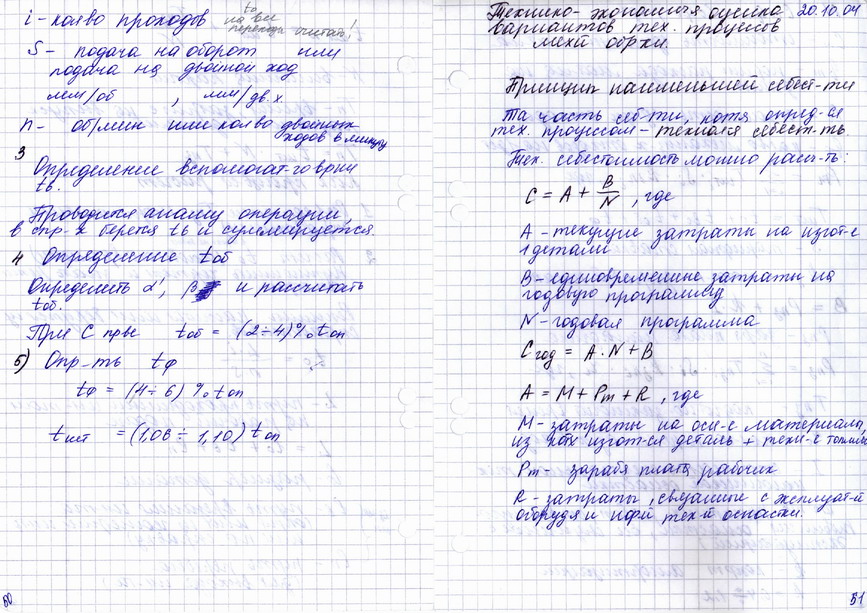 i - кол-во проходов
t₀
на все
переходы считать!
S - подача на оборот или
подача на двойной ход
мм/об , мм/дв.х.
n - об/мин или кол-во двойных
ходов в минуту
3
Определение вспомогат-го врни
tв.
Проводится анализ операции,
в спр-х берется tв и суммируется
4 Определение tоб
Определить α', β и рассчитать
tоб.
При С пр-ве tоб = (2÷4)% tоп
5) Опр-ть tф
tф = (4÷6)% tоп
tшт = (1,06÷1,10) tоп
50
Технико-экономическая оценка 20.10.04
вариантов тех. процессов
мех-й обр-ки.
Принцип наименьшей себест-ти
Та часть себ-ти, котя опред-ся
тех. процессом - технолся себест-ть
Тех. себестоимость можно расч-ть:
C = A + B/N , где
A - текущие затраты на изгот-е
1 детали
B - единовременные затраты на
годовую программу
N - годовая программа
Cгод = A·N + B
A = M + Pт + R, где
M - затраты на осн-е материалы,
из котх изгот-ся деталь + техн-е топливо
Pт - зарабя плата рабочих
R - затраты, связанные с эксплуат-й
оборудя и тех-й оснастки.
51